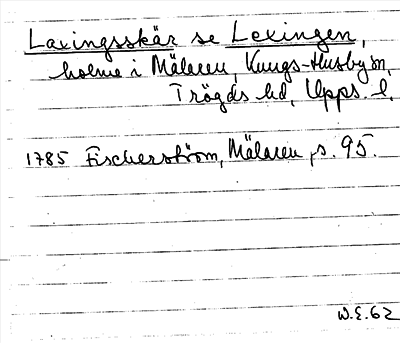 Laxingsskär se Lexingen,
holme i Mälaren, Kungs-Husby sn,
Trögds hd, Upps. l.
1785 Fischerström, Mälaren, s. 95.
W.E.62